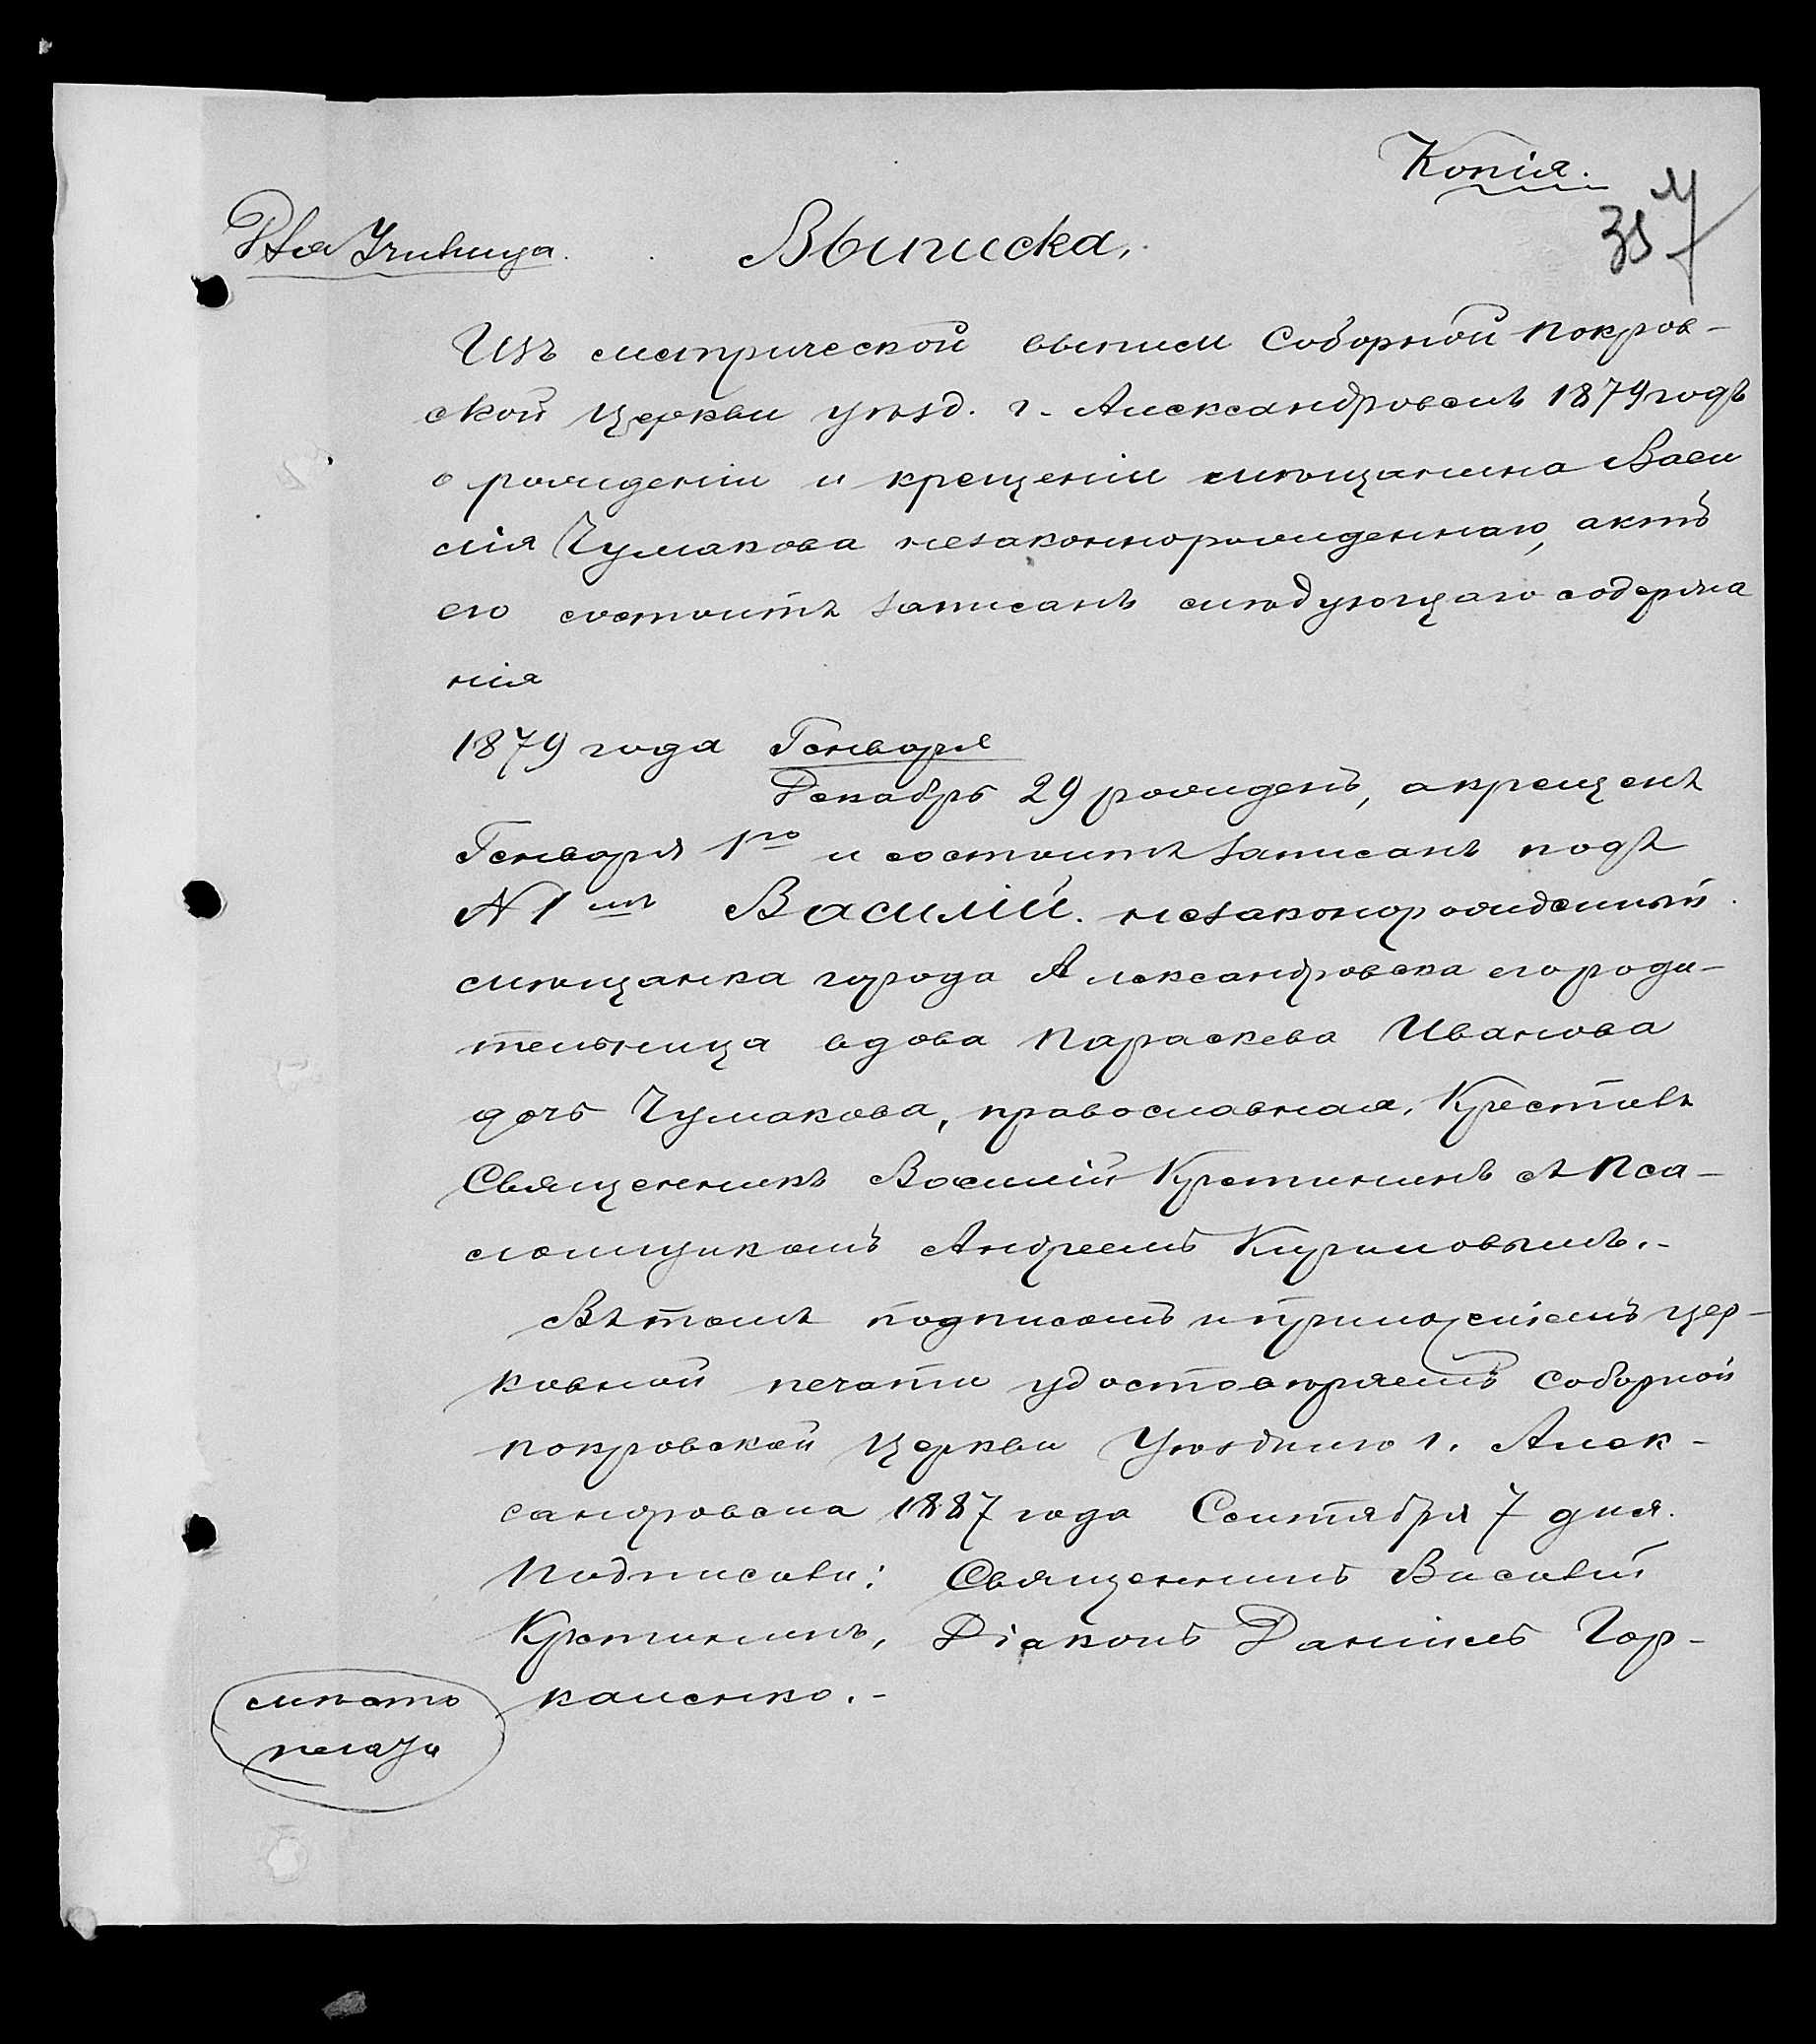 Копія.
Для Училища.
Выписка.
Изъ метрической выписи Соборной Покров-
ской Церкви уѣзд. г. Александровскъ 1879 годъ
о рожденіи и крещеніи мѣщанина Васи
лія Чумакова незаконнорожденнаго, актъ
его состоитъ записанъ слѣдующаго содержа
нія
1879 года Генваря
Декабрь 29 рожденъ, а крещенъ
Генваря 1го и состоитъ записанъ подъ
№ 1мъ Василій. незаконорожденный
мѣщанка города Александровска его роди-
тельница вдова Параскева Иванова
дочь Чумакова, православная. Крестилъ
Священникъ Василій Кретининъ съ Пса-
ломщикомъ Андреемъ Кириловымъ.-
Въ томъ подписомъ и приложеніемъ цер-
ковной печати удостовѣряемъ Соборной
Покровской Церкви Уѣзднаго г. Алек-
сандровска 1887 года Сентября 7 дня.
Подписали: Священникъ Василій
Кретининъ, Діаконъ Даніилъ Гор-
каменко.-
мѣсто
печати